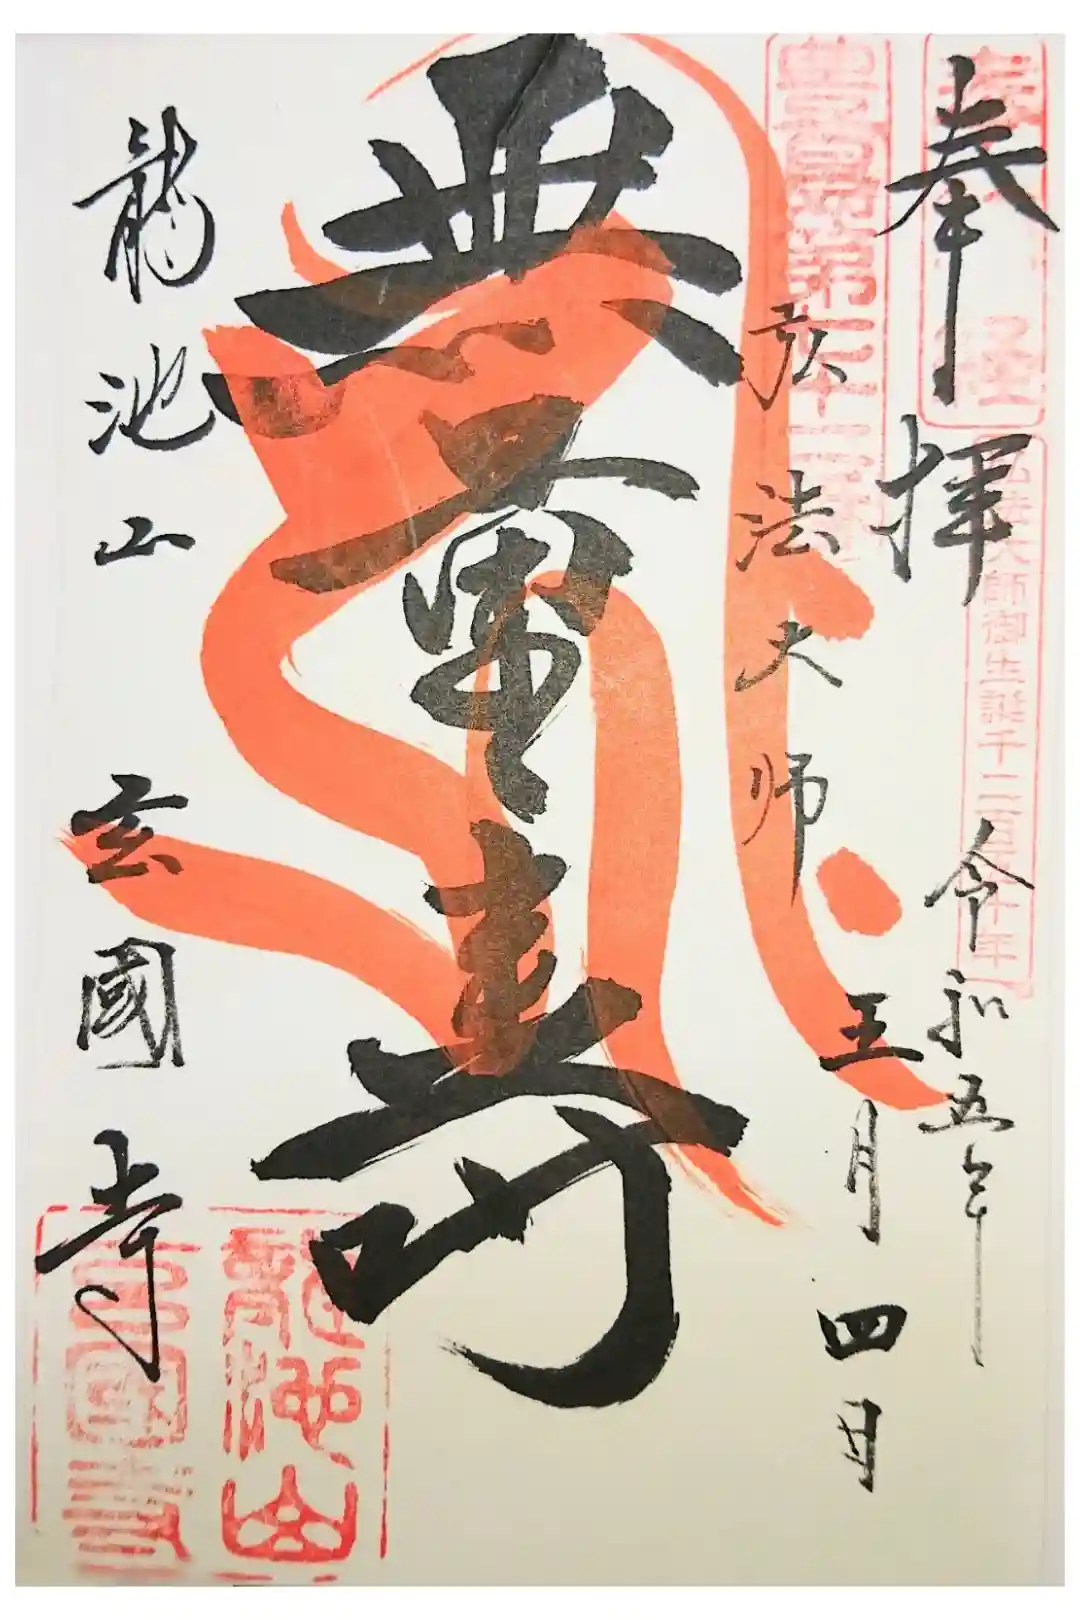 奉拝
令和五年
五月四日
弘法大師御生誕千二百五十年
弘法大師
無量壽
龍池山 玄國寺
龍池山
玄國寺